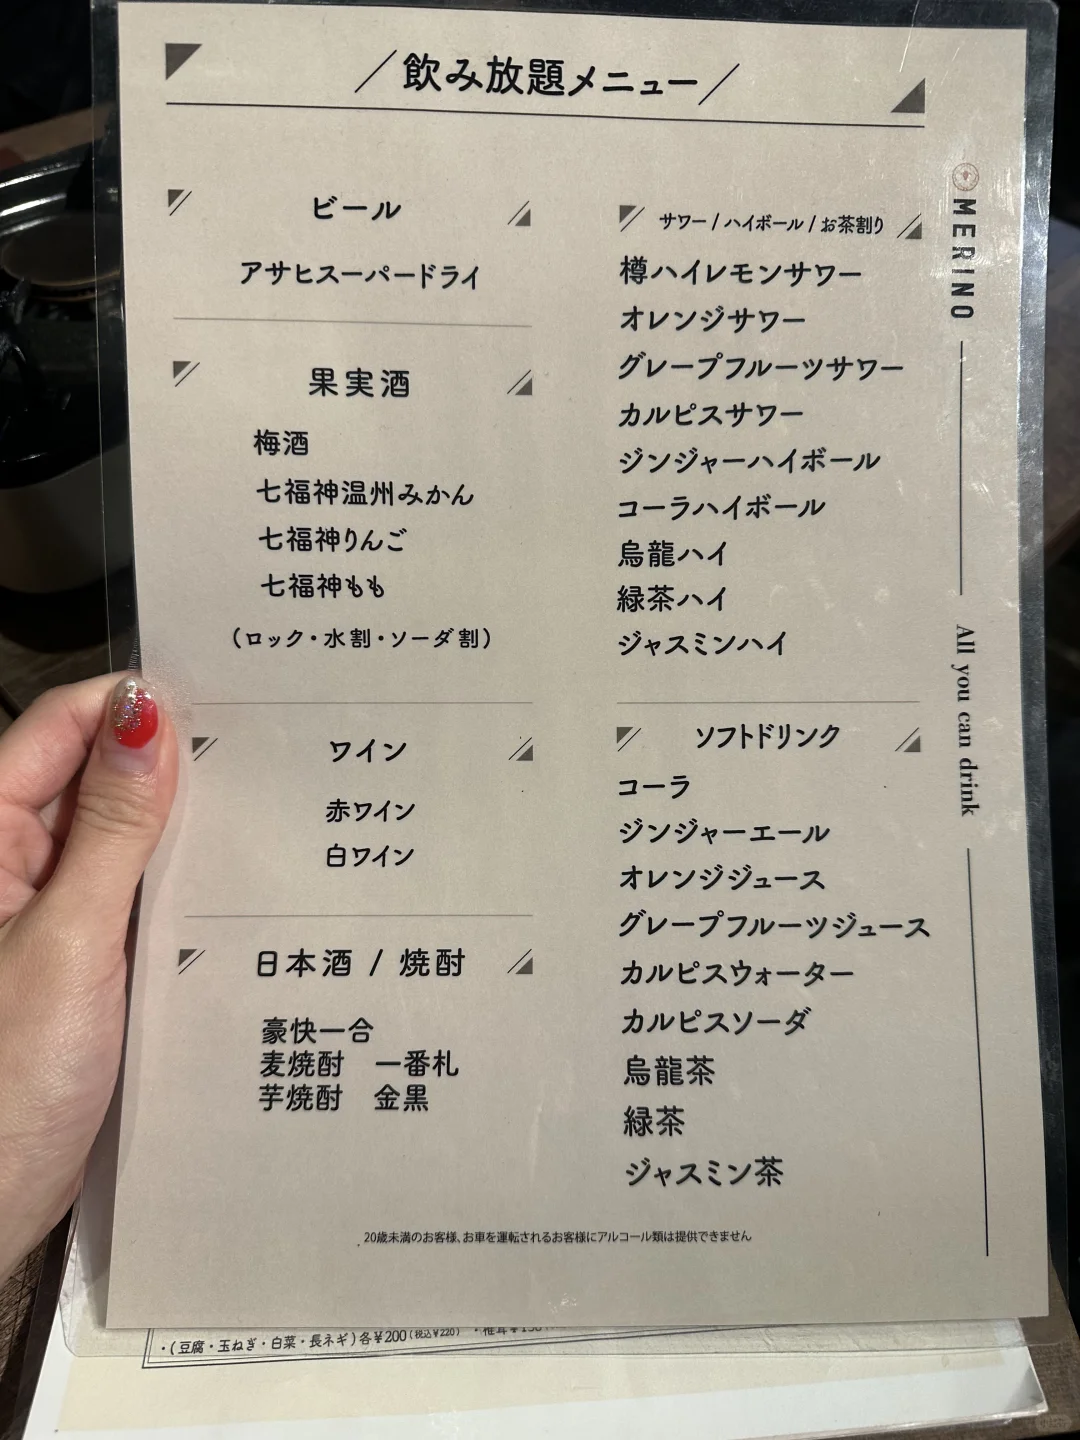 飲み放題メニュー
ビール
アサヒスーパードライ
果実酒
梅酒
七福神温州みかん
七福神りんご
七福神もも
(ロック・水割・ソーダ割)
ワイン
赤ワイン
白ワイン
日本酒 / 焼酎
豪快一合
麦焼酎 一番札
芋焼酎 金黒
サワー / ハイボール / お茶割り
樽ハイレモンサワー
オレンジサワー
グレープフルーツサワー
カルピスサワー
ジンジャーハイボール
コーラハイボール
烏龍ハイ
緑茶ハイ
ジャスミンハイ
ソフトドリンク
コーラ
ジンジャーエール
オレンジジュース
グレープフルーツジュース
カルピスウォーター
カルピスソーダ
烏龍茶
緑茶
ジャスミン茶
MERINO
All you can drink
20歳未満のお客様、お車を運転されるお客様にアルコール類は提供できません
・(豆腐・玉ねぎ・白菜・長ネギ)各¥200(税込¥220)